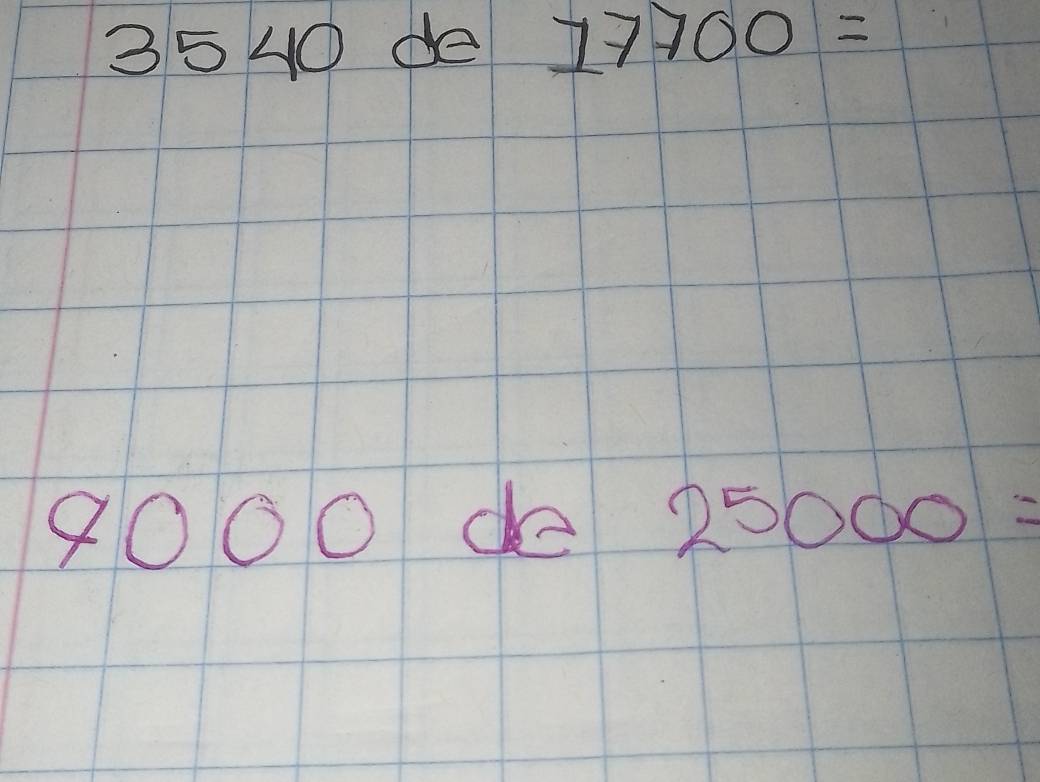 3540 de 17700 =
9000 de 25000 =